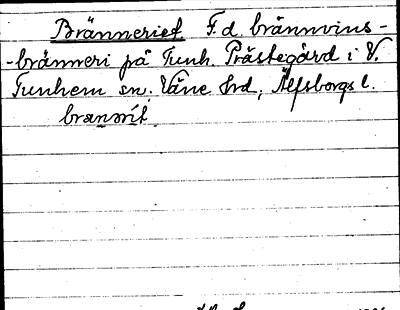 Brännerief F. d. brännvins-
-bränneri på Tunh. Prästegård i V.
Tunhem sn. Väne hrd, Älfsborgs l.